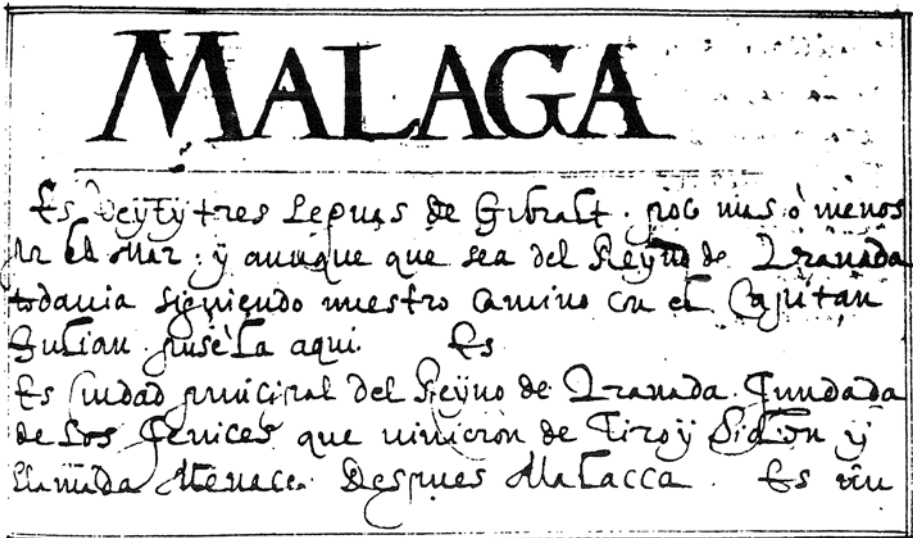 MALAGA
Es Veÿtÿtres Leguas de Gibralt. poc mas ò menos
por el Mar. ÿ aunque que sea del Reÿno de Granada
todauia siguiendo nuestro camino con el Capitan
Julian. pusèla aqui. Es
Es Ciudad principal del Reÿno de Granada. Fundada
de Los Fenices que uinieron de Tiro ÿ Sidon ÿ
llamada Menace. Despues Malacca. Es